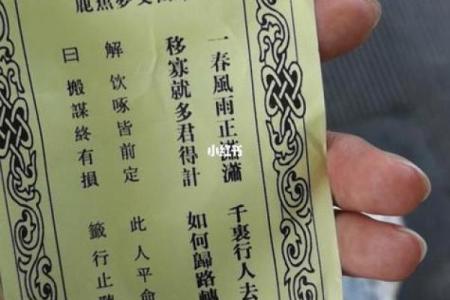 一春風雨正瀟瀟 千裏行人去
移寡就多君得計 如何歸路轉
解 饮啄皆前定 此人平命
曰 搬謀終有損 籤行止
小红书